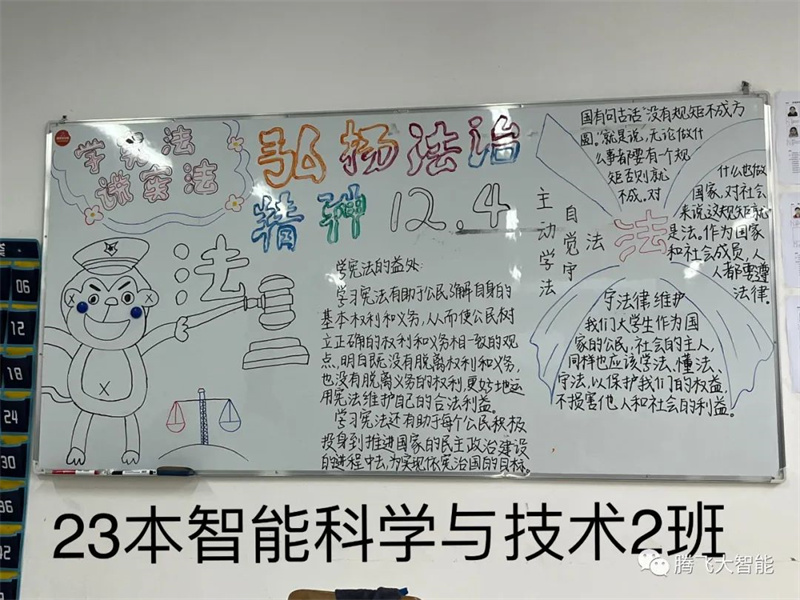 学宪法
讲宪法
弘扬法治
精神 12.4
法
学宪法的益处:
学习宪法有助于公民了解自身的
基本权利和义务,从而使公民树
立正确的权利和义务相一致的观
点,明白既没有脱离权利和义务,
也没有脱离义务的权利,更好地运
用宪法维护自己的合法利益。
学习宪法还有助于每个公民积极
投身到推进国家的民主政治建设
的进程中去,为实现依宪治国的目标
国有句古话"没有规矩不成方
圆。"就是说,无论做什
么事都要有个规
矩否则就
不成。对
什么也做
国家,对社会
来说这规矩就
是法。作为国家
和社会成员,人
人都要遵
法律。
主动学法
自觉守法
法
守法律维护
我们大学生作为国
家的公民,社会的主人,
同样也应该学法、懂法、
守法,以保护我们的权益,
不损害他人和社会的利益。
06
12
18
24
30
36
42
23本智能科学与技术2班
腾飞大智能